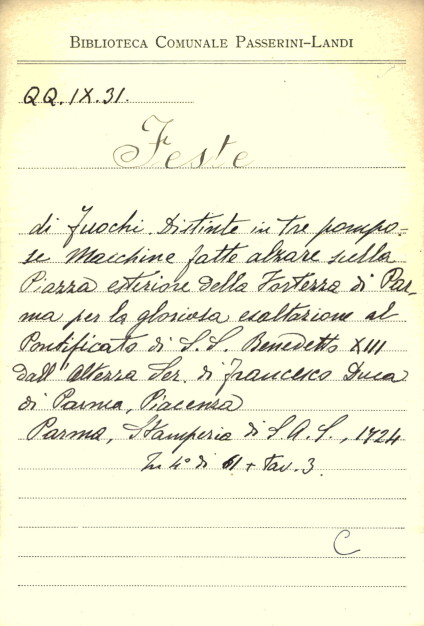 BIBLIOTECA COMUNALE PASSERINI-LANDI
QQ. IX. 31.
Feste
di Fuochi Distinte in tre pompo-
se Macchine fatte alzare sulla
Piazza esteriore della Fortezza di Par-
ma per la gloriosa esaltazione al
Pontificato di S. S. Benedetto XIII
dall'Altezza Ser. di Francesco Duca
di Parma, Piacenza
Parma, Stamperia di S. A. S., 1724
In 4° di 61 + tav. 3.
C